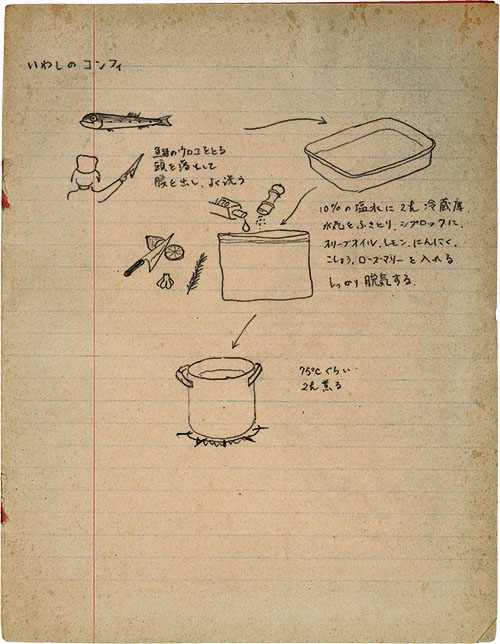 いわしのコンフィ
鰯のウロコをとる
頭を落として
腹を出し、よく洗う
10%の塩水に2h 冷蔵庫.
水気をふきとり、ジプロックに、
オリーブオイル、レモン、にんにく、
こしょう、ローズマリーを入れる
しっかり脱気する.
75℃ぐらい
2h 煮る